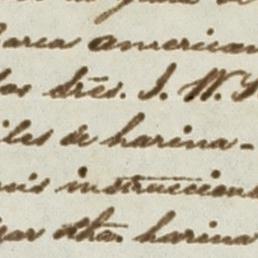 barca american
los Sres. J. W. S
iles de harina-
mis instrucciones
sar dha. harina